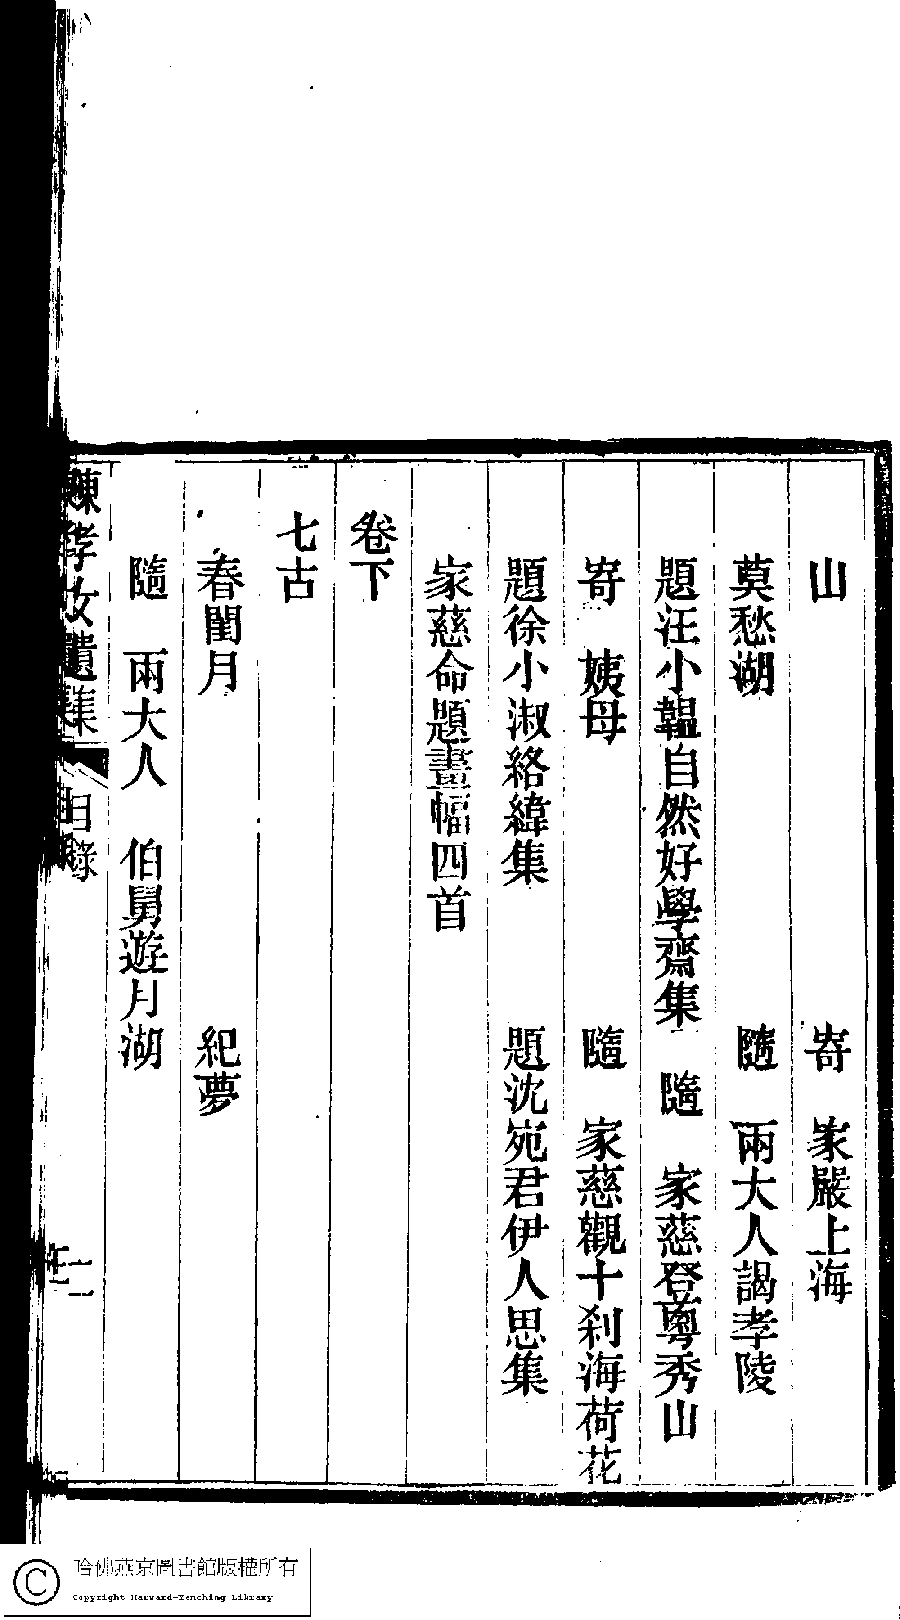 山　寄　家嚴上海
莫愁湖　隨　兩大人謁孝陵
題汪小韞自然好學齋集　隨　家慈登粵秀山
寄　姨母　隨　家慈觀十刹海荷花
題徐小淑絡緯集　題沈宛君伊人思集
家慈命題畫幅四首
卷下
七古
春閨月　紀夢
隨　兩大人　伯舅遊月湖
陳孝女遺集　目錄　二
哈佛燕京圖書館版權所有
Copyright Harvard-Yenching Library